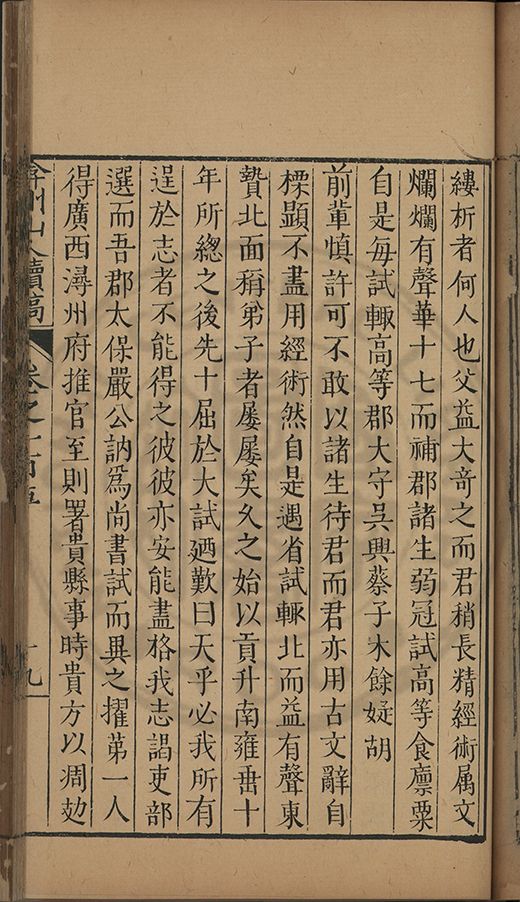 縷析者何人也父益大竒之而君稍長精經術属文
爛爛有聲華十七而補郡諸生弱冠試高等食廪粟
自是毎試輙高等郡大守吳興蔡子木餘姚胡
前輩慎許可不敢以諸生待君而君亦用古文辭自
標顯不盡用經術然自是遇省試輙北而益有聲東
贄北面稱弟子者屡屡矣久之始以貢升南雍畨十
年所緫之後先十屈於大試廼歎曰天乎必我所有
逞於志者不能得之彼彼亦安能盡格我志謁吏部
選而吾郡太保嚴公訥爲尚書試而異之擢苐一人
得廣西潯州府推官至則署貴縣事時貴方以凋劾
弇州山人續稿 卷之一百五 十九